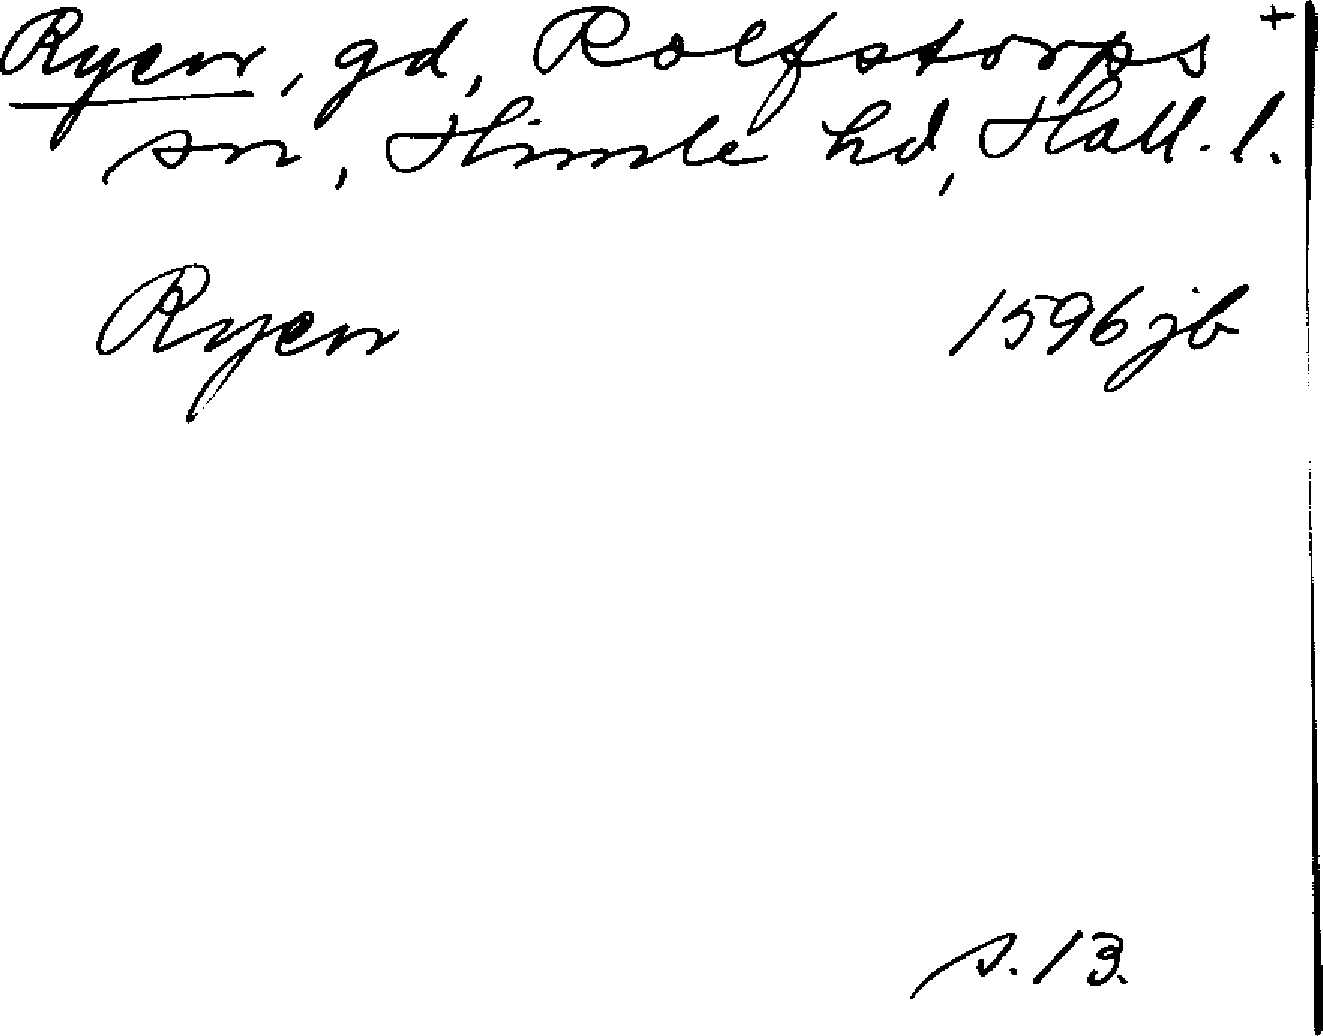 Ryen, gd, Rolfstorps +
sn, Himle hd, Hall. l.
Ryen 1596 jb
s. 13.